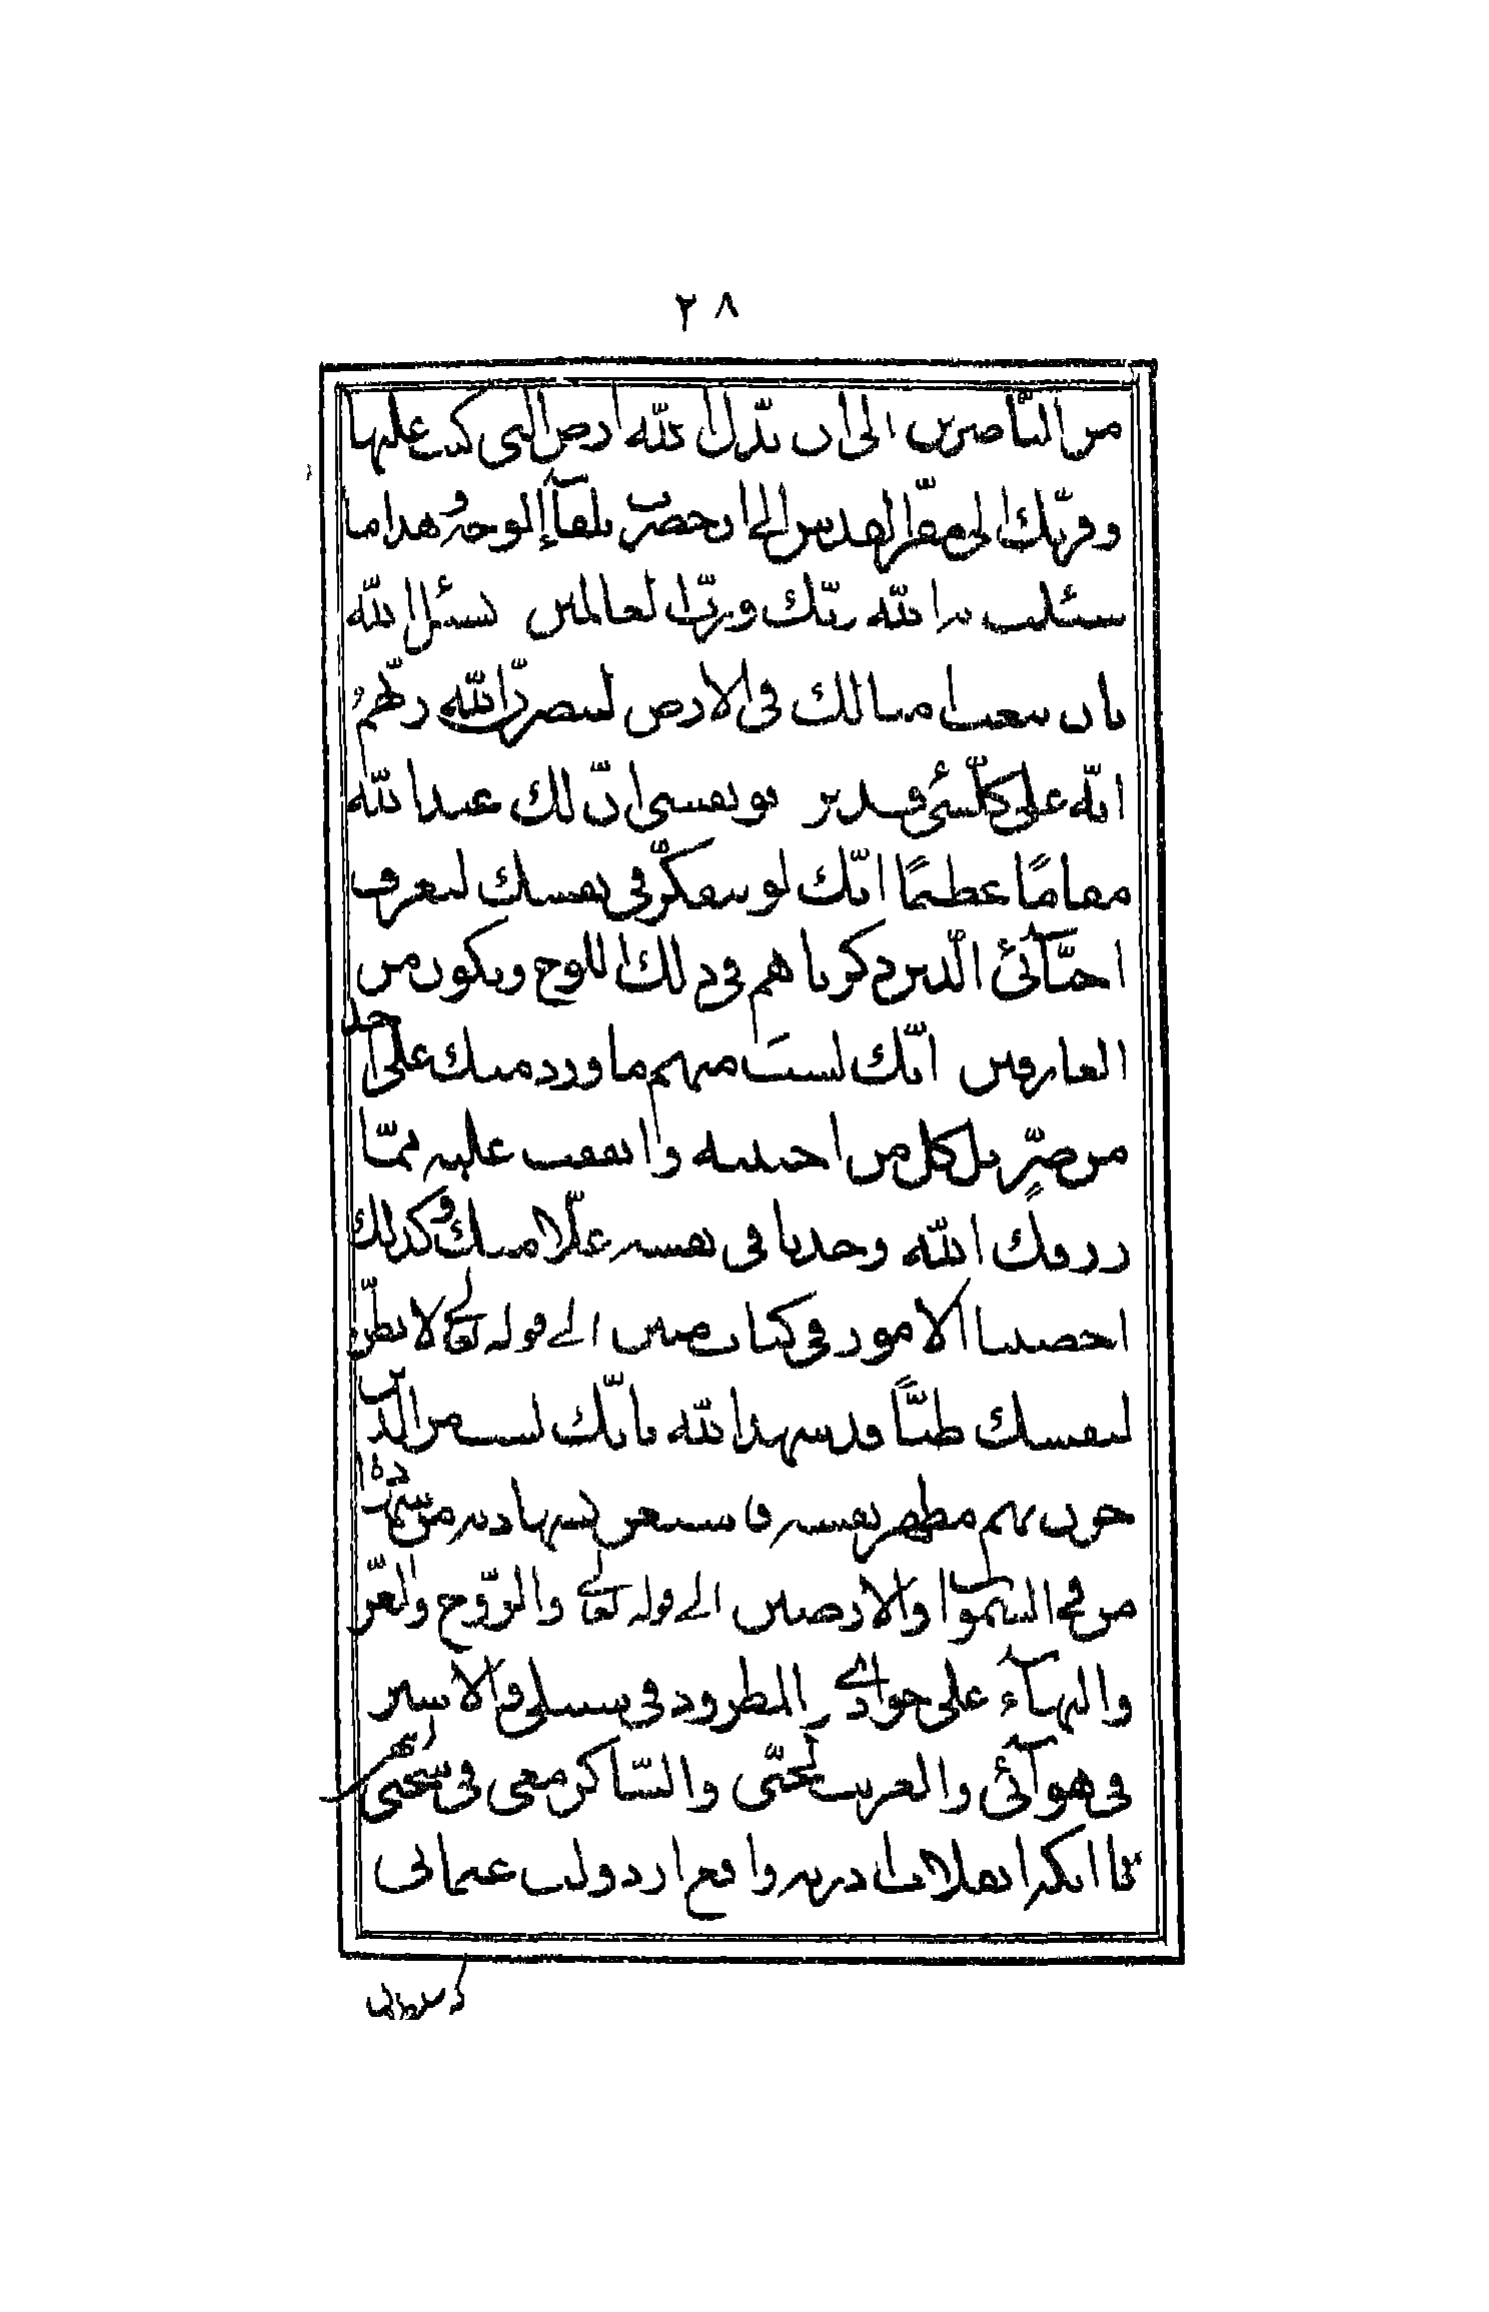 ٢٨
من الناصرين الى ان بدّل الله ارض التى كنت عليها
وقرّبك الى مقرّ القدس الى ان حضرت بلقآء الوجه وهذا ما
سئلت به الله ربّك وربّ العالمين نسئل الله
بان يبعث امثالك فى الارض لينصرنّ الله ربّهم
انّه على كلّشئ قدير فو نفسى انّ لك عند الله
مقامًا عظيمًا انّك لو تتفكّر فى نفسك لتعرف
احبّآئى الّذين ذكرناهم فى ذلك اللوح وتكون من
العارفين انّك لستَ منهم ما ورد منك على احد
من ضرٍّ بل كل من احببته وانفقت عليه ممّا
رزقك الله وجدنا فى نفسه غلّا منك وكذلك
احصينا الامور فى كتاب مبين الى قوله تعالى لا تظنّ
لنفسك ظنًّا قد شهد الله بانّك لست من الّذين
حزن بهم مظهر نفسه فاستغن بشهادته من شهادة
من فى السّموات والارضين الى قوله تعالى والرّوح والعزّ
والبهآء على جوادى المطرود فى سبيلى والاسير
فى هوآئى والغريب لحبّى والسّاكن معى فى سجنى انتهى
تا آنكه انقلابات ادرنه واقع از دولت عثمانى